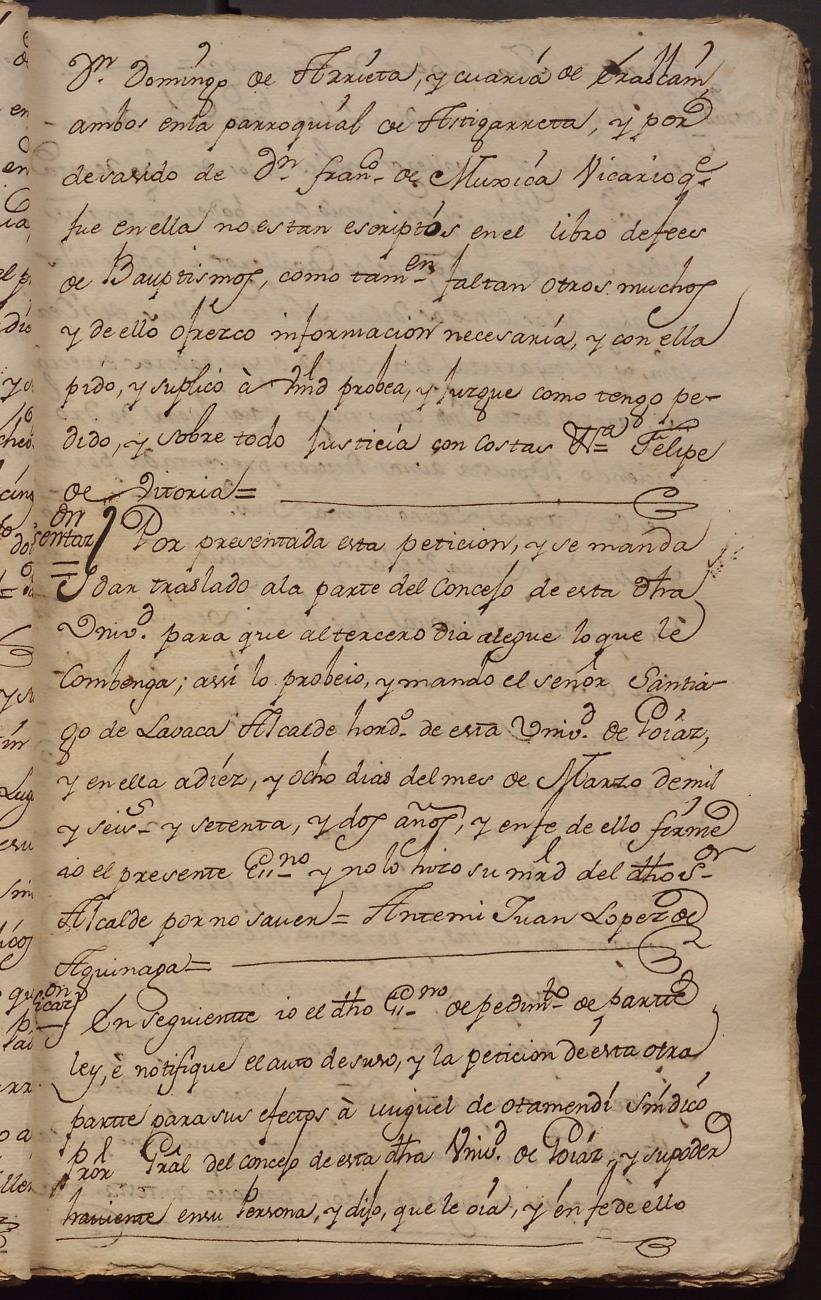 Dn. Domingo de Arrieta, y cuaria de
ambos enla parroquial de Astigarreta, y por
de Dn franco. de Muxica Vicario qe
fue en ella no estan escriptos en el libro defees
de Bauptismos, como tamen faltan otros muchos
y de ello ofrezco informacion necesaria, y con ella
pido, y suplico à Vmd probea, y Juzgue como tengo pe-
dido, y sobre todo Justicia con costas Felipe
de Vitoria =
Por presentada esta peticion, y se manda
dar traslado ala parte del Concejo de esta dha
Univd. para que al tercero dia alegue lo que le
Combenga; assi lo probeio, y mando el señor Santia-
go de Lavaca Alcalde hordo. de esta Univd. de Goiaz,
y en ella a diez, y ocho dias del mes de Marzo de mil
y seiss y setenta, y dos años, y en fe de ello firme
io el presente Essno y no lo hizo su mrd del dho Sr
Alcalde por no saver = Antemi Juan Lopez de
Aguinaga =
En seguiente io el dho Essno de pedimto de partte
ley, è notifique el auto de suso, y la peticion de esta otra
partte para sus efectos à Miguel de otamendi Sindico
pror Gral del concejo de esta dha Univd. de Goiaz, y su poder
haviente en su Persona, y dijo, que le oia, y en fe de ello